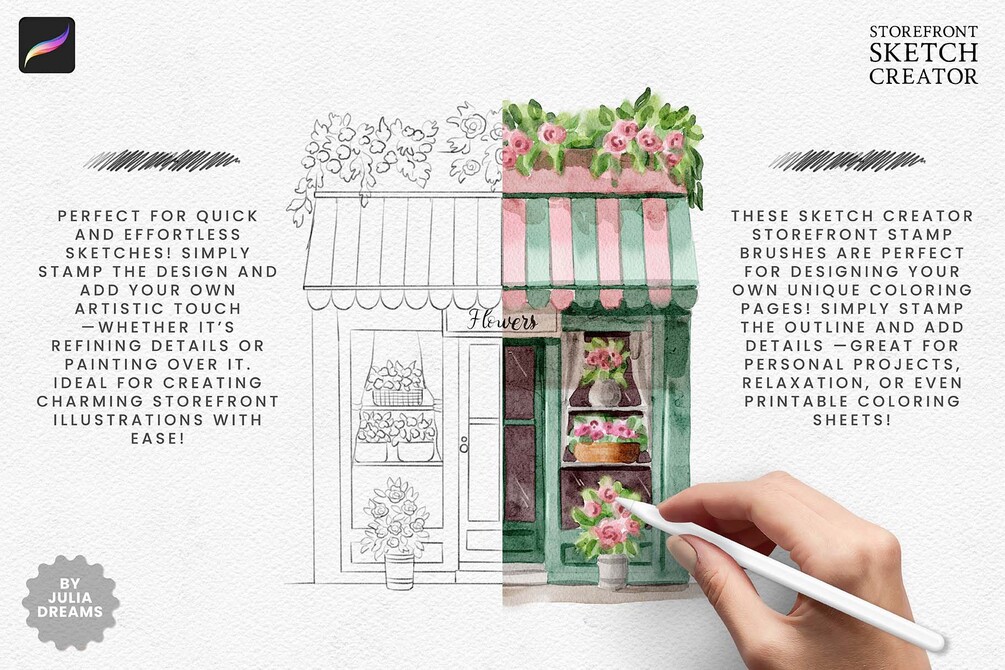 STOREFRONT
SKETCH
CREATOR
PERFECT FOR QUICK
AND EFFORTLESS
SKETCHES! SIMPLY
STAMP THE DESIGN AND
ADD YOUR OWN
ARTISTIC TOUCH
—WHETHER IT'S
REFINING DETAILS OR
PAINTING OVER IT.
IDEAL FOR CREATING
CHARMING STOREFRONT
ILLUSTRATIONS WITH
EASE!
Flowers
THESE SKETCH CREATOR
STOREFRONT STAMP
BRUSHES ARE PERFECT
FOR DESIGNING YOUR
OWN UNIQUE COLORING
PAGES! SIMPLY STAMP
THE OUTLINE AND ADD
DETAILS —GREAT FOR
PERSONAL PROJECTS,
RELAXATION, OR EVEN
PRINTABLE COLORING
SHEETS!
BY
JULIA
DREAMS